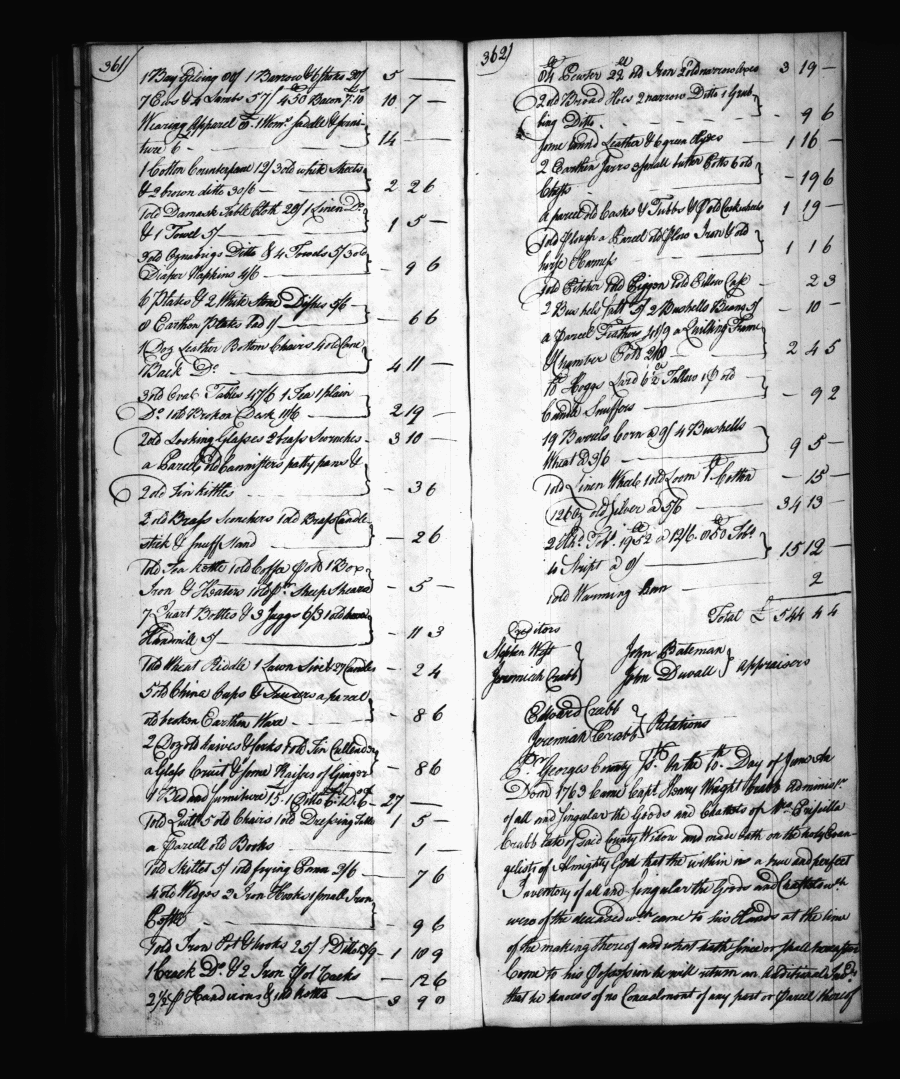 361)
1 Bay Gelding 80/ 1 Barrow & 6 shotes 20/ 5 —
7 Ews & 4 Lambs 57/ 450 Bacon 7.10 10 7 —
Wearing Apparel 8. 1 Wom.s Saddle & furni-
ture 6 — 14 —
1 Cotton Counterpane 12/ 3 old white Sheets
& 2 brown ditto 30/6 — 2 2 6
1 old Damask Table Cloth 20/ 1 Linen D.o
& 1 Towel 5/ — 1 5 —
3 old Oznabrigs Ditto & 4 Towels 5/ 3 old
Diaper Napkins 4/6 — - 9 6
6 Plates & 2 White Stone Dishes 5/6
8 Earthen Plates bad 1/ — - 6 6
1 Doz Leather Bottom Chairs 4 old Cane
Back D.o — 4 11 —
3 old Oval Tables 47/6 1 Tea 1 plain
D.o 1 old Broken Desk 11/6 — 2 19 —
2 old Looking Glasses 2 brass Sconches - 3 10 —
a Parcell old Cannisters patty pans &
2 old Tin kettles — - 3 6
2 old Brass Sconchers 1 old Brass Candle
stick & Snuff Stand — - 2 6
1 old Tea kettle 1 old Coffee Pott 1 Box
Iron & Heaters 1 old p.r Sheep Shears - 5 —
7 Quart Bottles & 3 Juggs 6/3 1 old
Handmill 5/ — - 11 3
1 old Wheat Riddle 1 Lawn Sive & 27 Candles - 2 4
5 old China Cups & Saucers a parcel
old broken Earthen Ware — - 8 6
2 Doz old knives & forks 1 old Tin Cullender
a Glass Cruit & some Raises of Ginger - 8 6
1 Bed and furniture 15. 1 Ditto 6. 1 D.o 6 - 27 —
1 old Quilt 5 old Chairs 1 old Dressing Table 1 5 —
a Parcell old Books — - 1 —
1 old Skillet 5/ 1 old frying Pann 2/6 — - 7 6
4 old Wedges 2 Iron Hooks 1 small Iron
Pestle — - 9 6
3 old Iron Pot & hooks 25/ 1 Ditto - 1 10 9
1 Crack D.o & 2 Iron Pot Racks - 12 6
2 ½ p.r Handirons & 1 old kettle — 3 9 0
362)
84 Pewter 22 old Iron 2 old narrow axes 3 19 —
2 old Broad Hoes 2 narrow Ditto 1 Grub-
bing Ditto - - - 9 6
some tann'd Leather & 6 green Hydes — 1 16 —
2 Earthen Jarrs 3 small butter Potts 6 old
Chests — - 19 6
a parcel old Casks & Tubbs & 8 old Cask 1 19 —
1 old Plough a Parcel old Plow Iron & old
horse Harness — 1 1 6
1 old Pitcher 1 old Piggon 1 old Pillow Case - 2 3
2 Bushels Salt 5/ 2 Bushells Beans 5/ - 10 —
a Parcel Feathers 41/9 a Quilting Frame
& Chamber Pott 2/8 — 2 4 5
10 Hoggs Lard 6½ Tallow 1 p old
Candle Snuffers — - 9 2
19 Barrels Corn @ 9/ 4 Bushells
Wheat @ 3/6 — 9 5 —
1 old Linen Wheele 1 old Loom 1 Cotton - 15 —
126 oz old Silver @ 5/6 — 34 13 —
2 Hhd.s Tob.o 1952 @ 12/6. 080 Tob.o
in Stript @ 9/ — 15 12 —
1 old Warming Pann — 2
Total £ 544 4 4
Creditors
Stephen West
Jeremiah Crabb
John Bateman
John Duvall } Appraisers
Edward Crabb
Jeremiah Crabb } Relations
P.r Georges County Ss. On the 10.th Day of June An
Dom 1763 Came Cap.t Henry Wright Crabb Administ.r
of all and singular the Goods and Chattels of M.rs Priscilla
Crabb late of said County Widow and made Oath on the holy Evan-
gelists of Almighty God that the within is a true and perfect
Inventory of all and singular the Goods and Chattels w.ch
were of the deceased w.ch came to his Hands at the time
of the making thereof and what hath since or shall hereafter
Come to his Possession he will return an Additional Inv.y
that he knows of no Concealment of any part or Parcel thereof